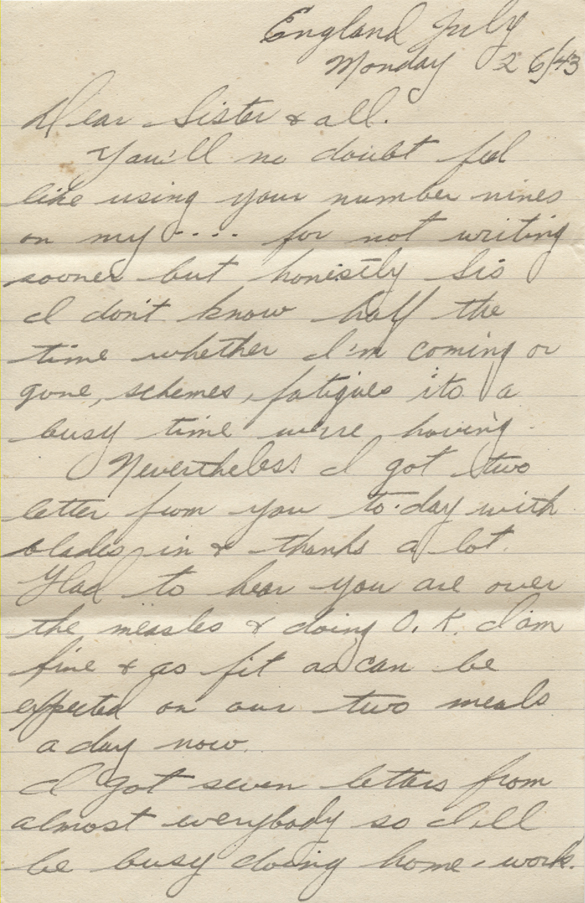 England July
Monday 26/43
Dear Sister & all.
You'll no doubt feel
like using your number nines
on my .... for not writing
sooner but honestly Sis
I don't know half the
time whether I'm coming or
gone, schemes, fatigues its a
busy time we're having.
Nevertheless I got two
letter from you to-day with
blades in & thanks a lot.
Glad to hear you are over
the measles & doing O.K. I'am
fine & as fit as can be
expected on our two meals
a day now.
I got seven letters from
almost everybody so I'll
be busy doing home-work.